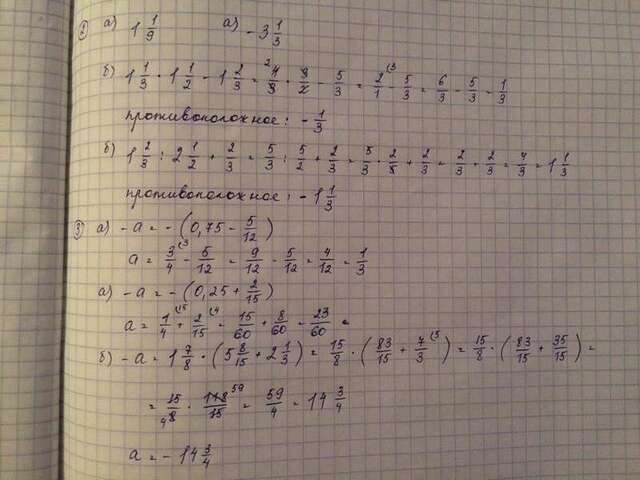 2) а) 1 1/9 а) -3 1/3
б) 1 1/3 · 1 1/2 - 1 2/3 = 4/3 · 3/2 - 5/3 = 2/1 - 5/3 = 6/3 - 5/3 = 1/3
противоположное: - 1/3
б) 1 2/3 : 2 1/2 + 2/3 = 5/3 : 5/2 + 2/3 = 5/3 · 2/5 + 2/3 = 2/3 + 2/3 = 4/3 = 1 1/3
противоположное: -1 1/3
3) а) -a = -(0,75 - 5/12)
a = 3/4 - 5/12 = 9/12 - 5/12 = 4/12 = 1/3
а) -a = -(0,25 + 2/15)
a = 1/4 + 2/15 = 15/60 + 8/60 = 23/60
б) -a = 1 7/8 · (5 8/15 + 2 1/3) = 15/8 · (83/15 + 7/3) = 15/8 · (83/15 + 35/15) =
= 15/8 · 118/15 = 59/4 = 14 3/4
a = -14 3/4